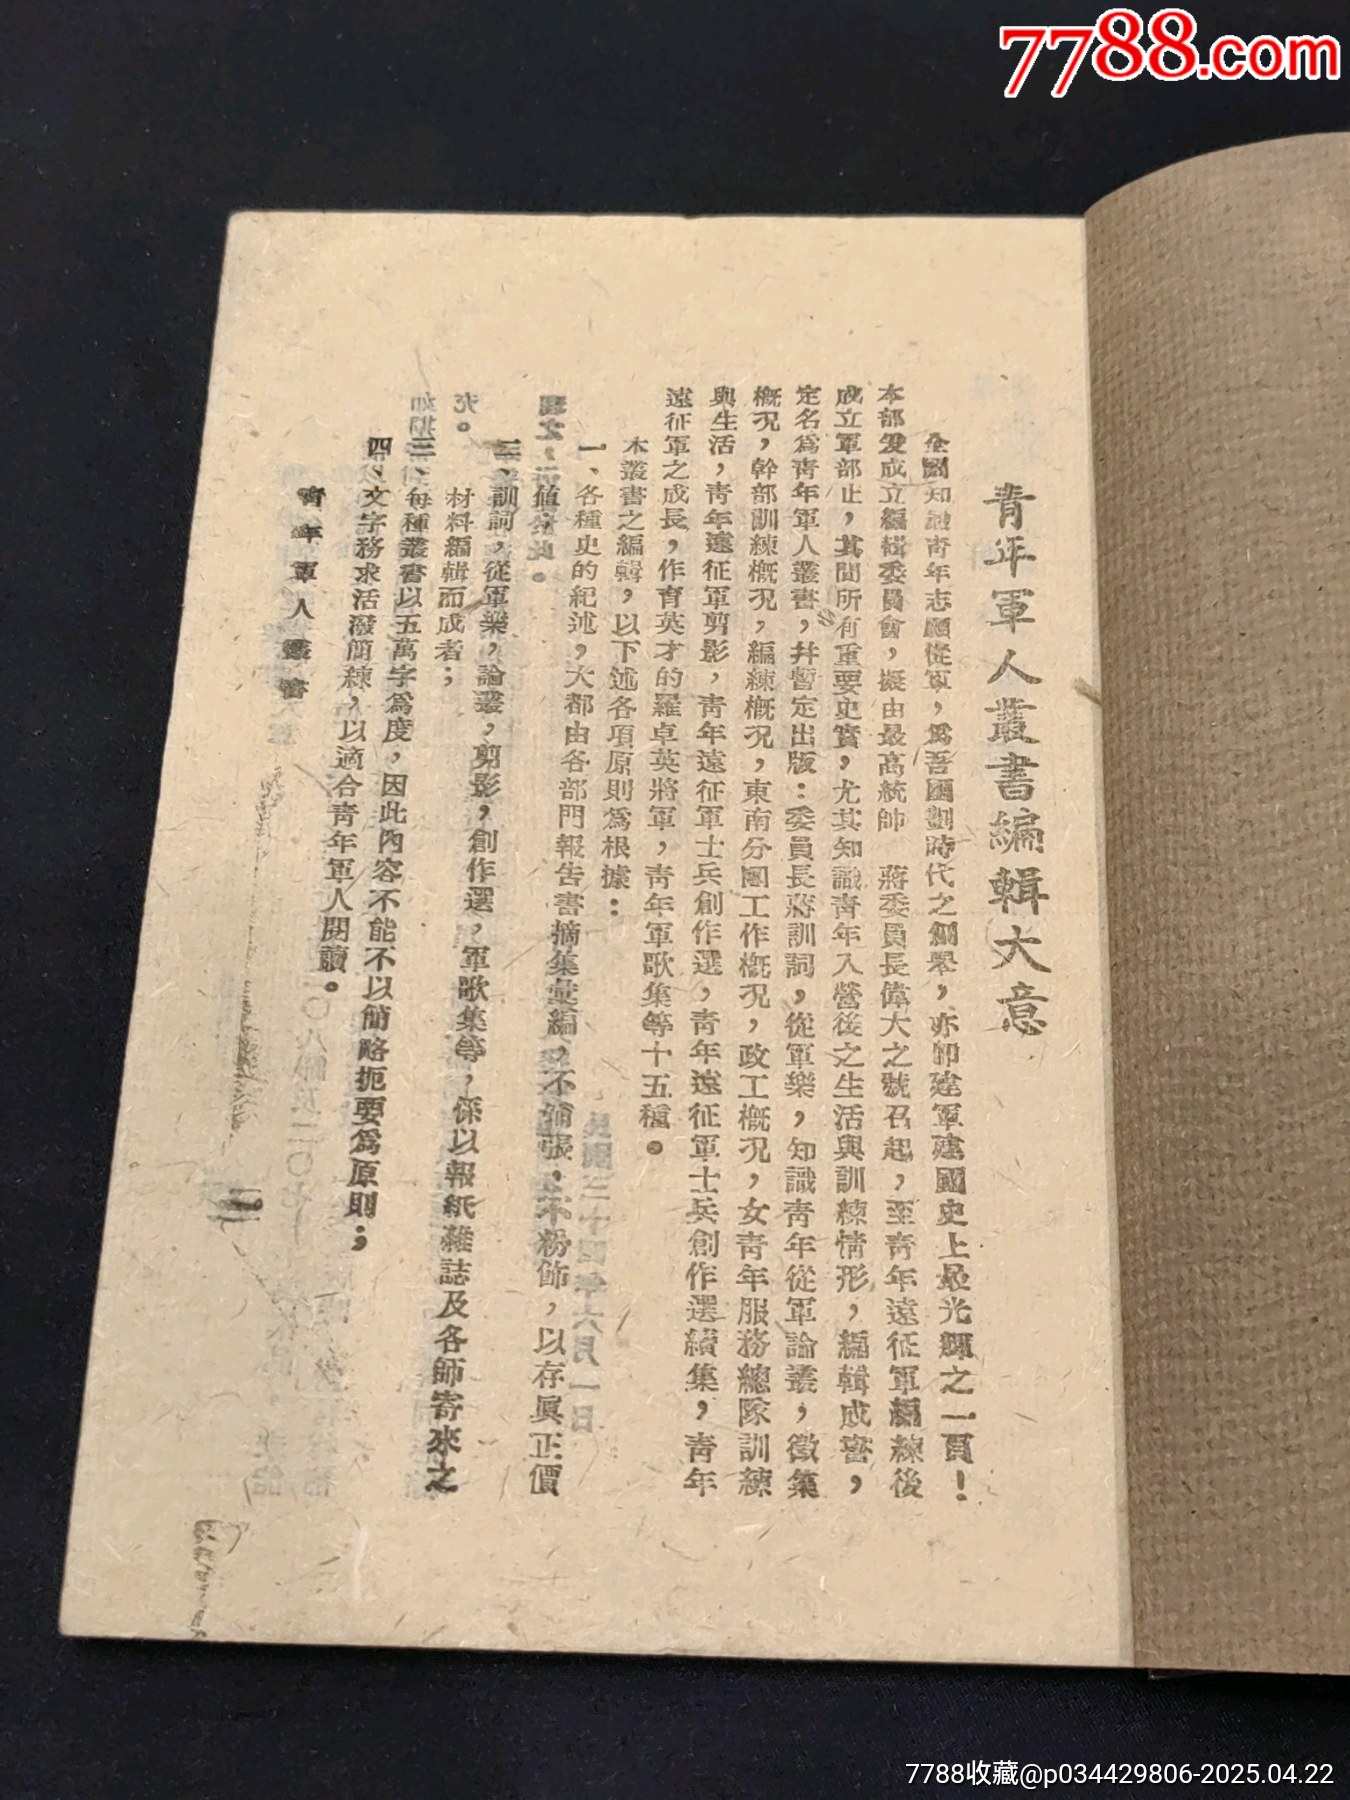 7788.com
青年軍人叢書編輯大意
全國知識青年志願從軍,爲吾國劃時代之創舉,亦卽建軍建國史上最光輝之一頁!
本部爰成立編輯委員會,擬由最高統帥　蔣委員長偉大之號召起,至青年遠征軍編練後
成立軍部止,其間所有重要史實,尤其知識青年入營後之生活與訓練情形,編輯成書,
定名爲青年軍人叢書,幷暫定出版:委員長蔣訓詞,從軍樂,知識青年從軍論叢,徵集
概況,幹部訓練概況,編練概況,東南分團工作概況,政工概況,女青年服務總隊訓練
與生活,青年遠征軍剪影,青年遠征軍士兵創作選,青年遠征軍士兵創作選續集,青年
遠征軍之成長,作育英才的羅卓英將軍,青年軍歌集等十五種。
本叢書之編輯,以下述各項原則爲根據:
一、各種史的紀述,大都由各部門報告書摘集彙編,不鋪張,不粉飾,以存眞正價
值;
二、訓詞,從軍樂,論叢,剪影,創作選,軍歌集等,係以報紙雜誌及各師寄來之
材料編輯而成者;
三、每種叢書以五萬字爲度,因此內容不能不以簡略扼要爲原則;
四、文字務求活潑簡練,以適合青年軍人閱讀。
青年軍人叢書
一
民國三十四年六月一日
7788收藏@p034429806-2025.04.22